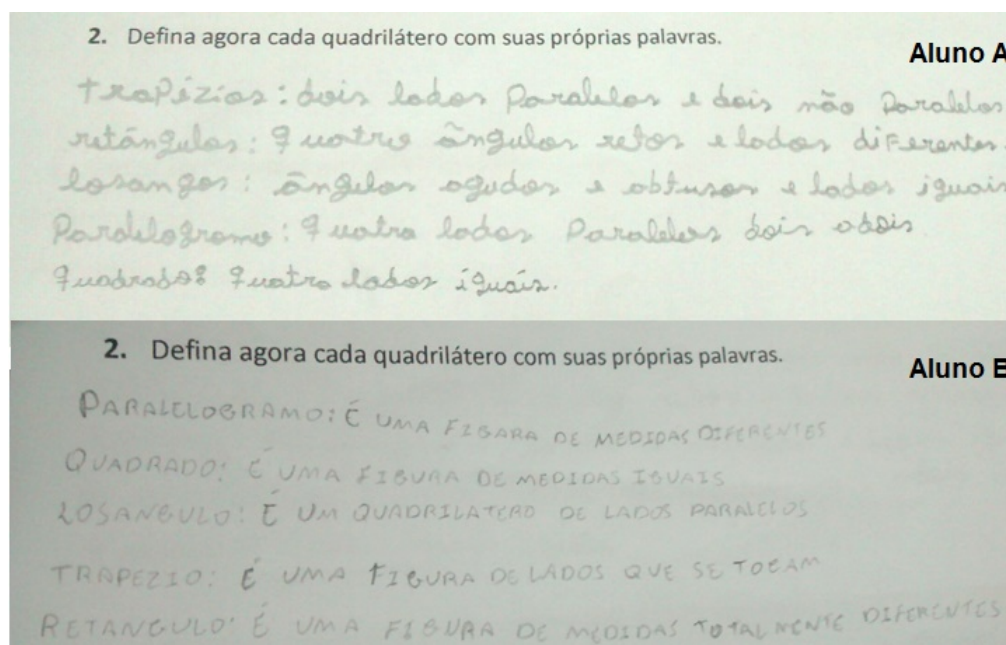 2. Defina agora cada quadrilátero com suas próprias palavras.
Aluno A
trapézios: dois lados Paralelos e dois não Paralelos
retângulos: quatro ângulos retos e lados diferentes.
losangos: ângulos agudos e obtusos e lados iguais
Paralelogramo: quatro lados Paralelos dois a dois
quadrados: quatro lados iguais.
2. Defina agora cada quadrilátero com suas próprias palavras.
Aluno B
PARALELOGRAMO: É UMA FIGARA DE MEDIDAS DIFERENTES
QUADRADO: É UMA FIGURA DE MEDIDAS IGUAIS
LOSANGULO: É UM QUADRILATERO DE LADOS PARALELOS
TRAPEZIO: É UMA FIGURA DE LADOS QUE SE TOCAM
RETANGULO: É UMA FIGURA DE MEDIDAS TOTALMENTE DIFERENTES